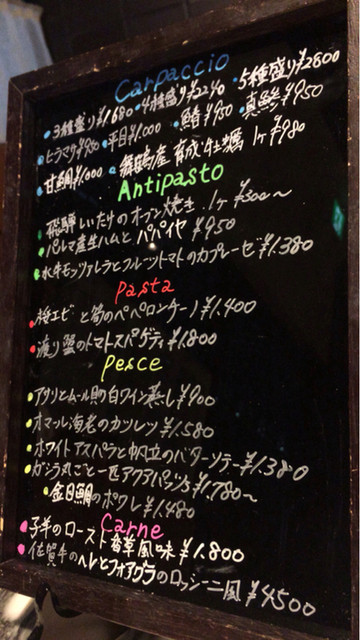 Carpaccio
・3種盛り¥1680・4種盛り¥2240・5種盛り¥2800
・ヒラマサ¥950・平目¥1,000・鰆¥950・真鯵¥950
・甘鯛¥1,000・舞鶴産 育成牡蠣 1ヶ¥980
Antipasto
・飛騨しいたけのオーブン焼き 1ヶ¥300〜
・パルマ産生ハムと パパイヤ ¥950
・水牛モッツァレラとフルーツトマトのカプレーゼ¥1,380
Pasta
・桜エビと筍のペペロンチーノ¥1,400
・渡り蟹のトマトスパゲティ¥1,800
Pesce
・アサリとムール貝の白ワイン蒸し¥900
・オマール海老のカツレツ¥1,580
・ホワイトアスパラと帆立のバターソテー¥1,380
・ガシラ丸ごと一匹アクアパッツァ¥1,780〜
・金目鯛のポワレ¥1,480
Carne
・子羊のロースト香草風味¥1,800
・佐賀牛のヘレとフォアグラのロッシーニ風¥4500